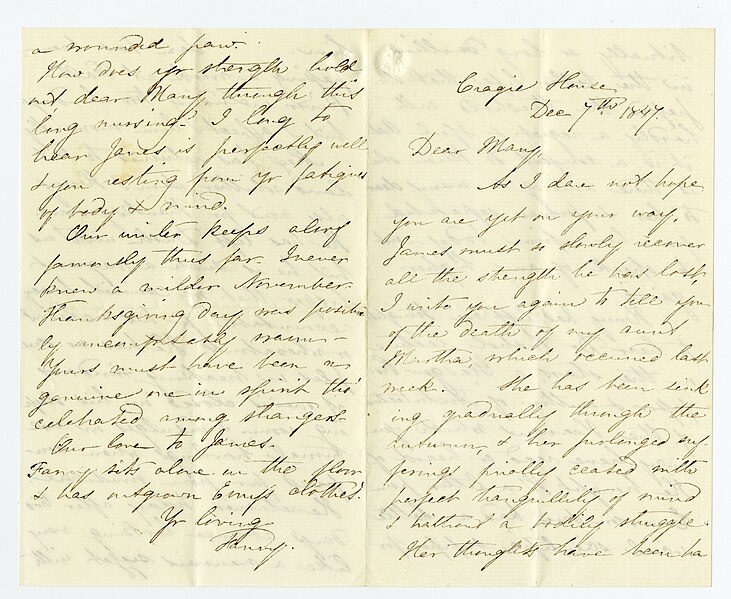 Cragie House
Dec 7th 1847.
Dear Mary,
As I dare not hope
you are yet on your way,
James must so slowly recover
all the strength he has lost,
I write you again to tell you
of the death of my aunt
Martha, which occurred last
week. She has been sink
ing gradually through the
autumn, & her prolonged suf
ferings finally ceased with
perfect tranquillity of mind
& without a bodily struggle.
Her thoughts have been ha
a wounded paw.
How does yr strength hold
out dear Mary through this
long nursing? I long to
hear James is perfectly well
& you resting from yr fatigues
of body & mind.
Our winter keeps along
famously thus far. I never
knew a milder November.
Thanksgiving day was positive
ly uncomfortably warm –
Yours must have been a
genuine one in spirit tho'
celebrated among strangers.
Our love to James.
Fanny sits alone on the floor
& has outgrown Erny's clothes!
Yr loving
Fanny.